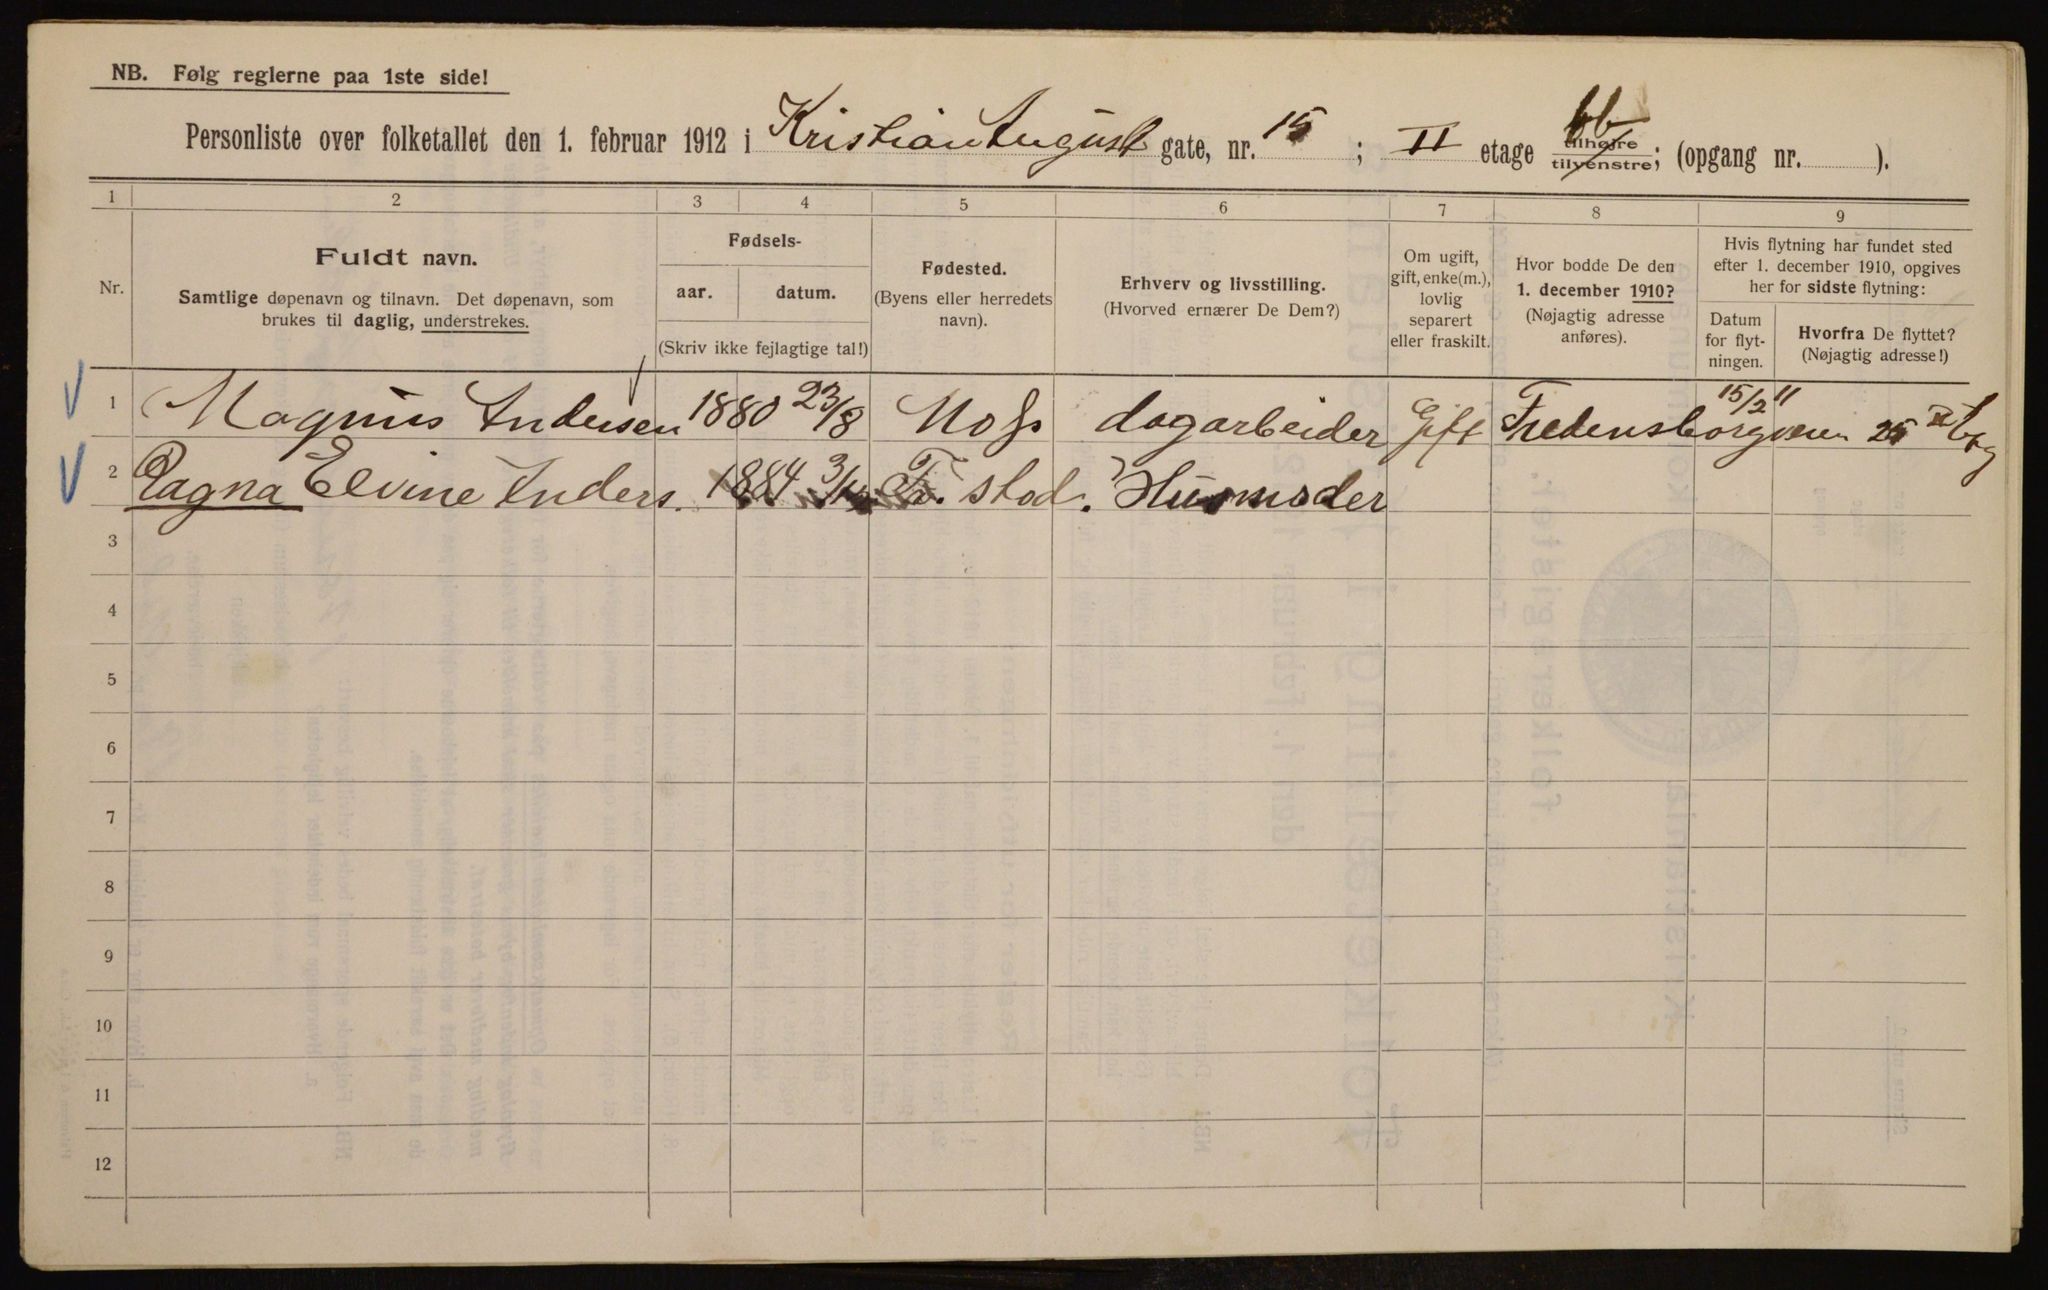 NB. Følg reglerne paa 1ste side!
Personliste over folketallet den 1. februar 1912 i Kristian August gate, nr. 15; II etage bb tilhøjre tilvenstre; (opgang nr. ).
1 2 3 4 5 6 7 8 9
Nr.
Fuldt navn.
Samtlige døpenavn og tilnavn. Det døpenavn, som
brukes til daglig, understrekes.
Fødsels-
aar. datum.
(Skriv ikke fejlagtige tal!)
Fødested.
(Byens eller herredets
navn).
Erhverv og livsstilling.
(Hvorved ernærer De Dem?)
Om ugift,
gift, enke(m.),
lovlig
separert
eller fraskilt.
Hvor bodde De den
1. december 1910?
(Nøjagtig adresse
anføres).
Hvis flytning har fundet sted
efter 1. december 1910, opgives
her for sidste flytning:
Datum
for flyt-
ningen.
Hvorfra De flyttet?
(Nøjagtig adresse!)
1 Magnus Andersen 1880 23/8 Moss dagarbeider Gift Fredensborgveien 25 15/2 11
2 Ragna Elvine Anders. 1884 Fr. stad. Husmoder
3
4
5
6
7
8
9
10
11
12